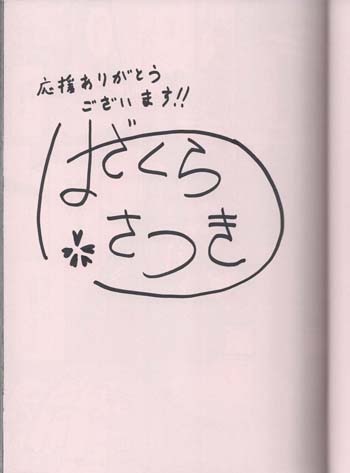 応援ありがとう
ございます!!
はざくら
さつき